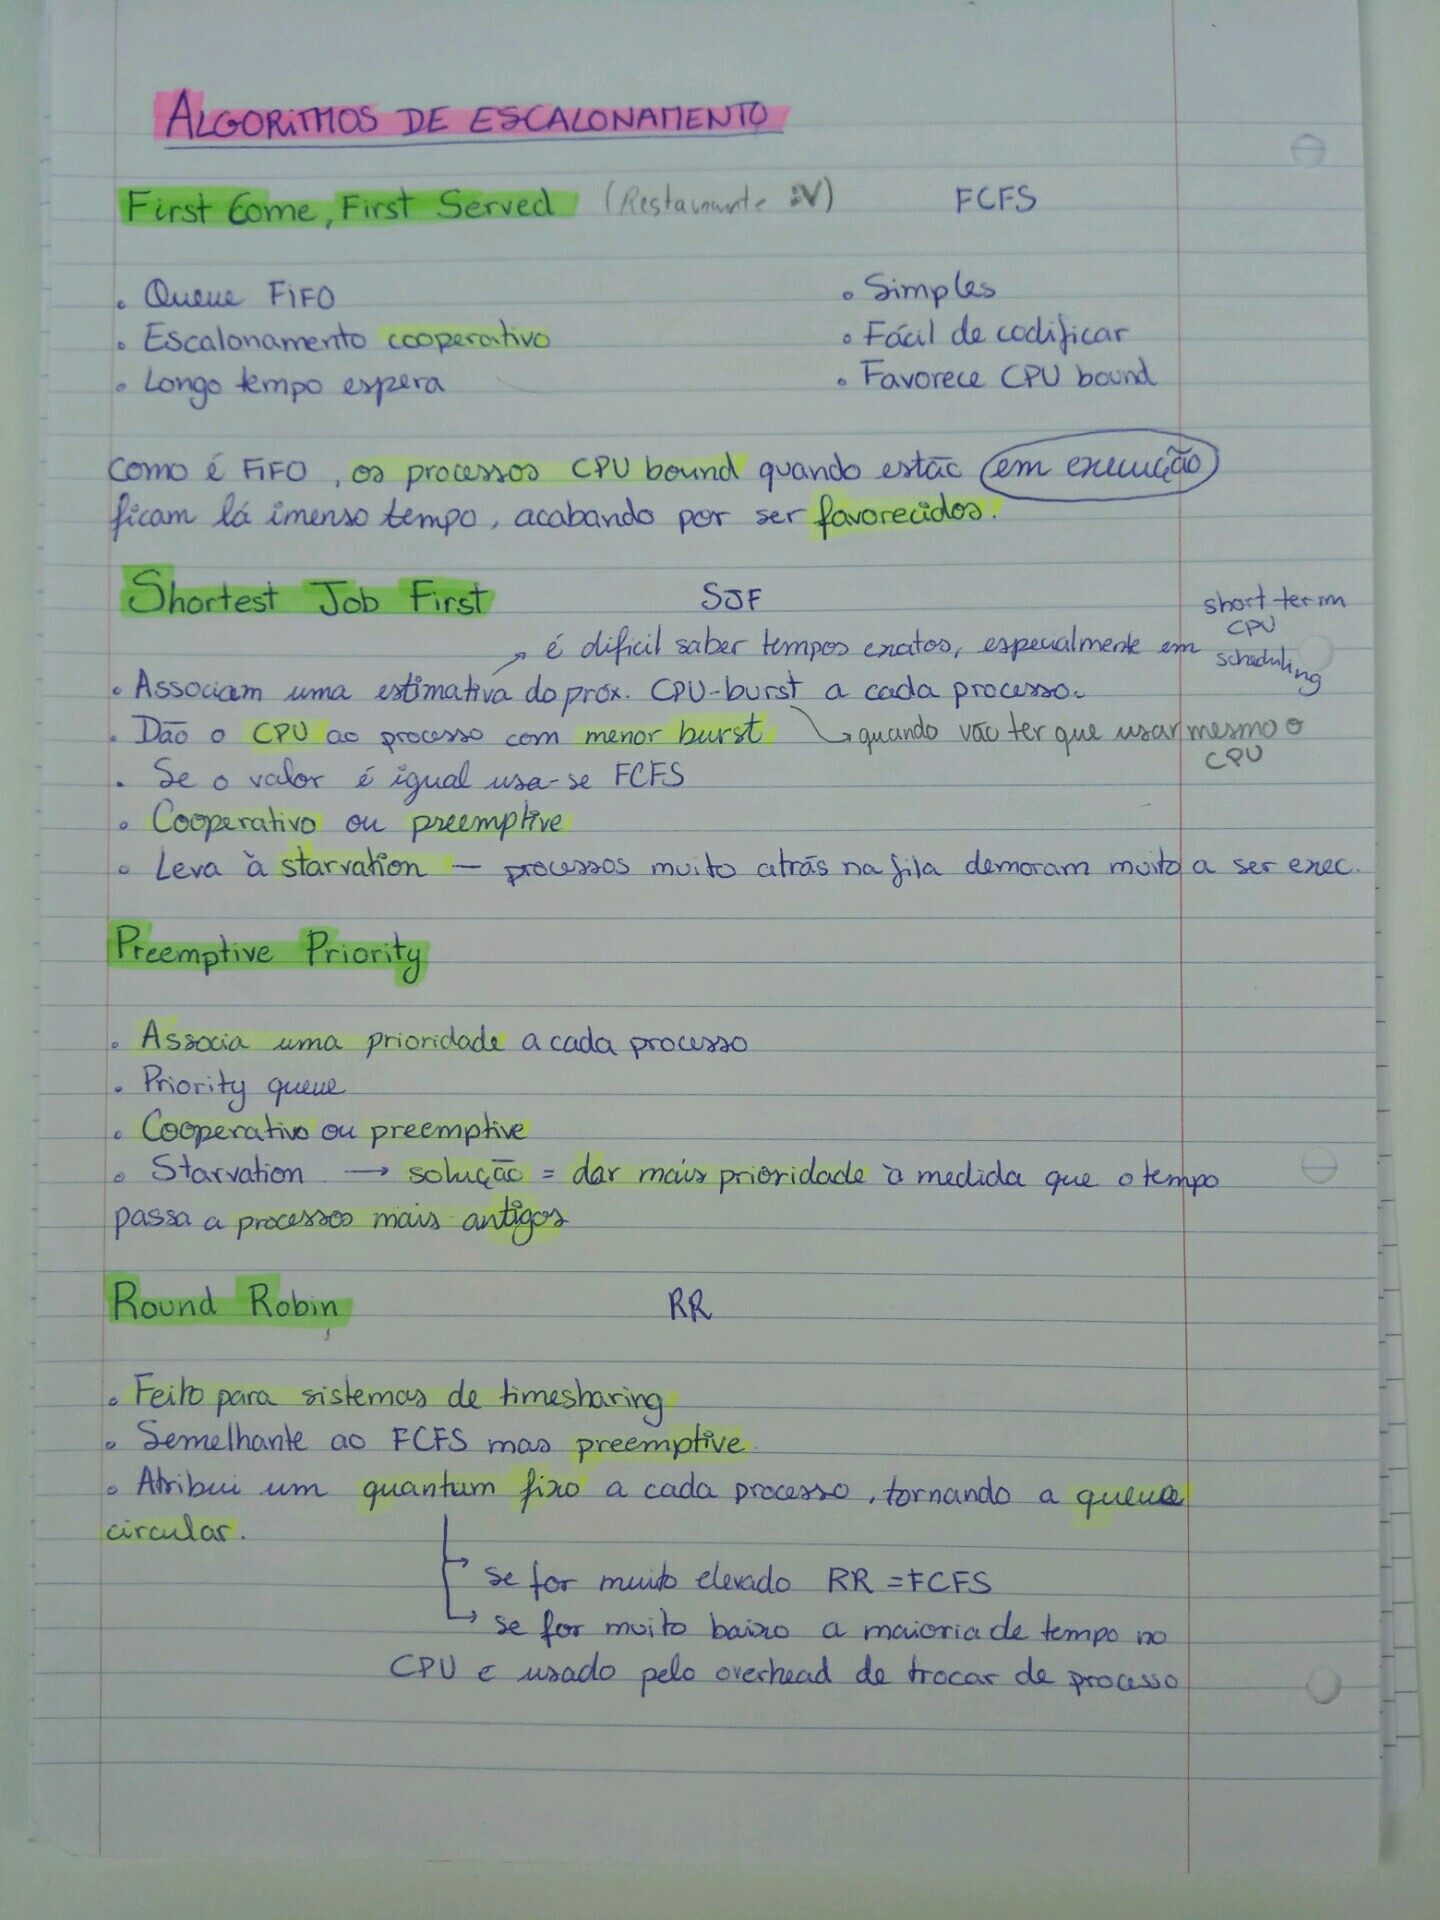 ALGORITMOS DE ESCALONAMENTO
First Come, First Served (Restaurante :V) FCFS
• Queue FIFO
• Simples
• Escalonamento cooperativo
• Fácil de codificar
• Longo tempo espera
• Favorece CPU bound
Como é FIFO, os processos CPU bound quando estão em execução
ficam lá imenso tempo, acabando por ser favorecidos.
Shortest Job First SJF
short term
CPU
scheduling
é dificil saber tempos exatos, especialmente em
• Associam uma estimativa do próx. CPU-burst a cada processo.
• Dão o CPU ao processo com menor burst
quando vão ter que usar mesmo o
CPU
• Se o valor é igual usa-se FCFS
• Cooperativo ou preemptive
• Leva à starvation — processos muito atrás na fila demoram muito a ser exec.
Preemptive Priority
• Associa uma prioridade a cada processo
• Priority queue
• Cooperativo ou preemptive
• Starvation → solução = dar mais prioridade à medida que o tempo
passa a processos mais antigos
Round Robin RR
• Feito para sistemas de timesharing
• Semelhante ao FCFS mas preemptive.
• Atribui um quantum fixo a cada processo, tornando a queue
circular.
→ se for muito elevado RR = FCFS
→ se for muito baixo a maioria de tempo no
CPU e usado pelo overhead de trocar de processo